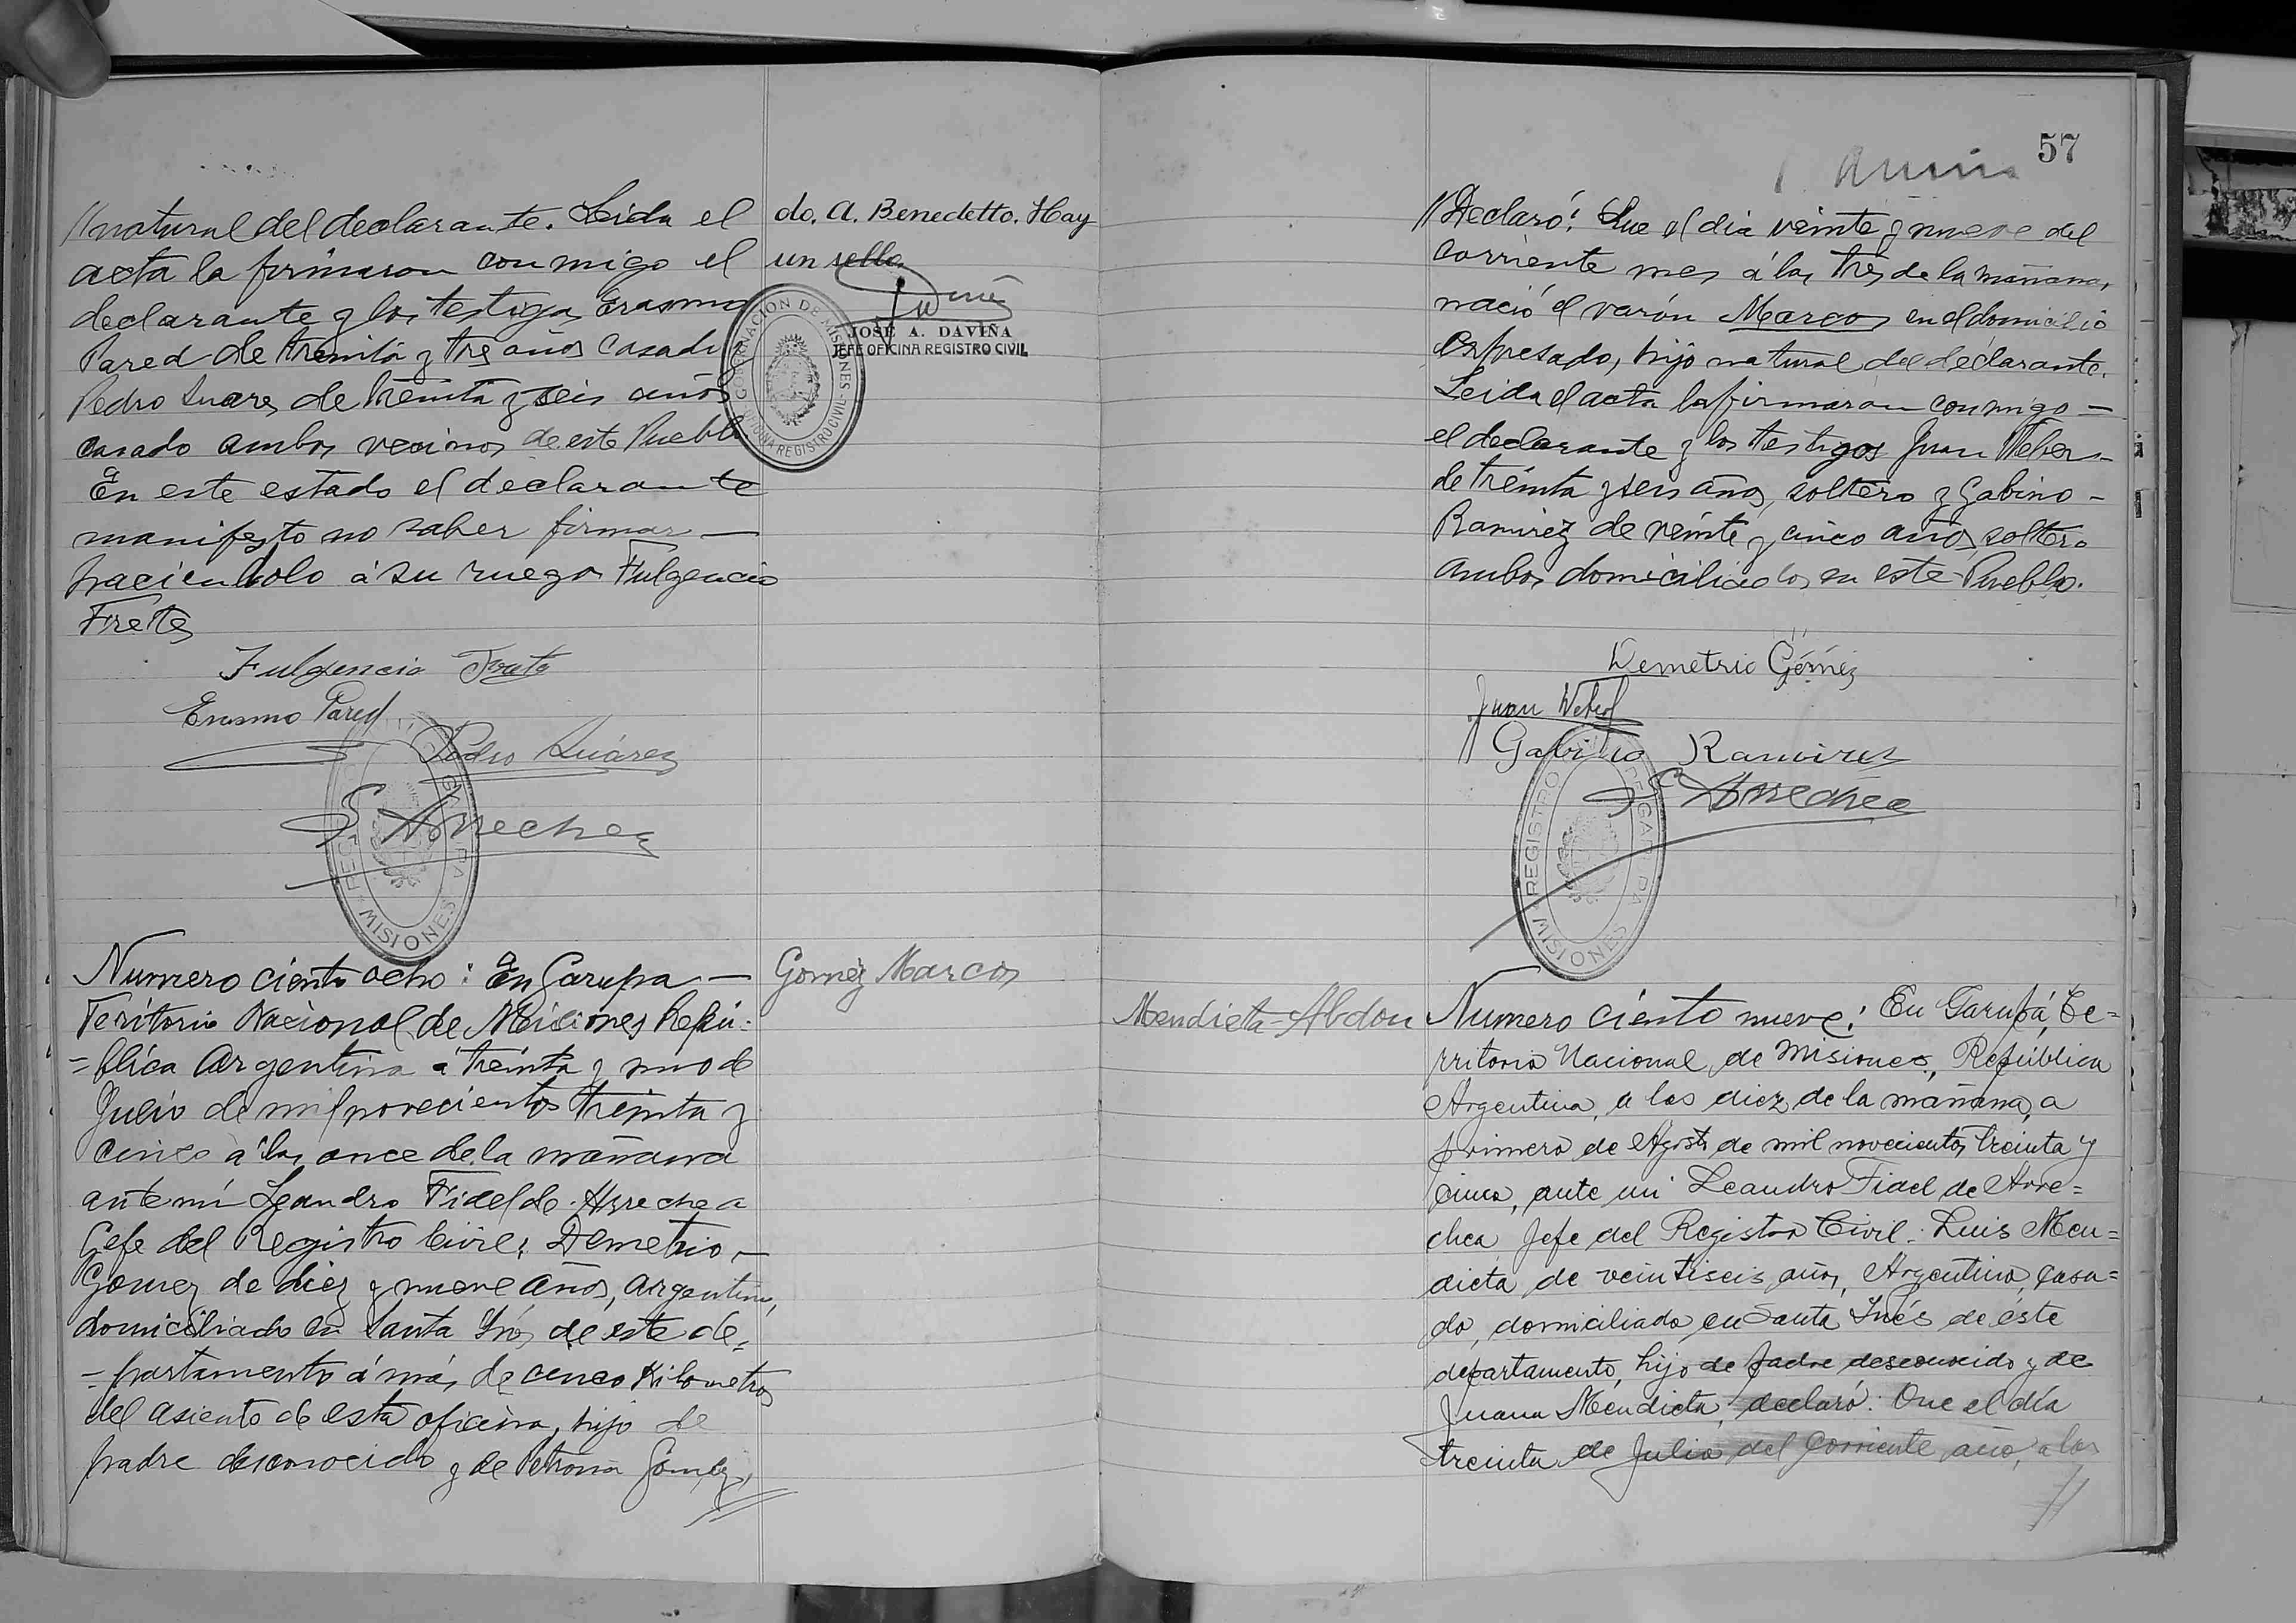 //natural del declarante. Leida el
acta la firmaron conmigo el
declarante y los testigos Erasmo
Pared de treinta y tres años casado
Pedro Suares de treinta y seis años
casado ambos vecinos de este Pueblo
En este estado el declarante
manifesto no saber firmar —
haciendolo á su ruego Fulgencio
Fretes
Fulgencio Frete
Erasmo Pared
Pedro Suárez
REGISTRO
MISIONES
Numero ciento ocho: En Garupa —
Territorio Nacional de Misiones Repú-
=blica Argentina á treinta y uno de
Julio de mil novecientos treinta y
cinco á las once de la mañana
ante mí Leandro Fidel de Arrechea
Gefe del Registro Civil: Demetrio —
Gomez de diez y nueve años, argentino,
domiciliado en Santa Inés de este de=
=partamento á más de cinco Kilometros
del asiento de esta oficina, hijo de
padre desconocido y de Petrona Gomez,
//
do. A. Benedetto. Hay
un sello
GOBERNACION DE MISIONES
OFICINA REGISTRO CIVIL
JOSÉ A. DAVIÑA
JEFE OFICINA REGISTRO CIVIL
Gomez Marcos
57
//Declaró: Que el dia veinte y nueve del
corriente mes á las tres de la mañana,
nació el varón Marcos en el domicilio
expresado, hijo natural del declarante.
Leida el acta la firmaron conmigo —
el declarante y los testigos Juan Weber —
de treinta y seis años, soltero y Gabino —
Ramirez de veinte y cinco años, soltero
ambos domiciliados en este Pueblo.
Demetrio Gómez
Juan Weber
Gabino Ramirez
Arrechea
REGISTRO
MISIONES
Mendieta Abdon
Numero ciento nueve: En Garupá, Te=
rritorio Nacional de Misiones, República
Argentina, a las diez de la mañana, a
primero de Agosto de mil novecientos treinta y
cinco, ante mi Leandro Fidel de Arre=
chea Jefe del Registro Civil: Luis Men=
dieta de veintiseis años, Argentino, casa=
do, domiciliado en Santa Inés de éste
departamento, hijo de padre desconocido y de
Juana Mendieta, declaró: Que el día
treinta de Julio del corriente año, a las
//